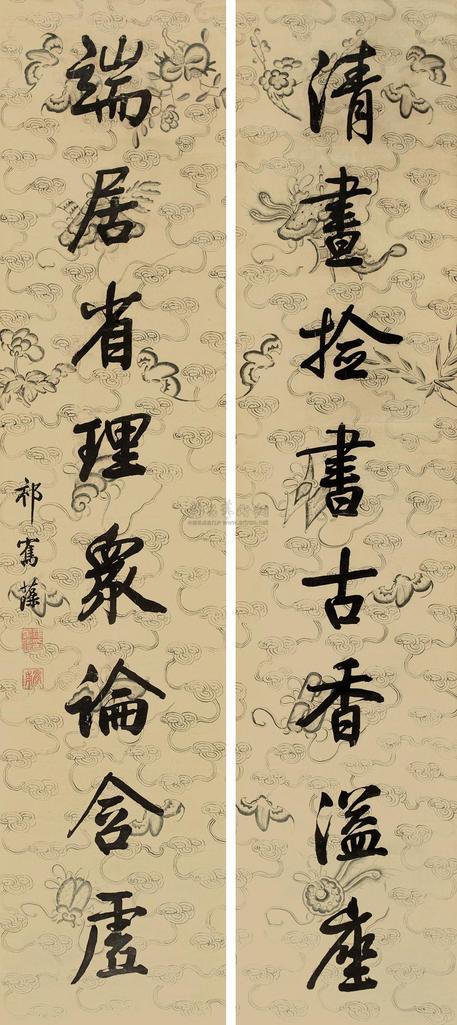 清晝撿書古香溢座
端居省理眾論含虛
祁寯藻